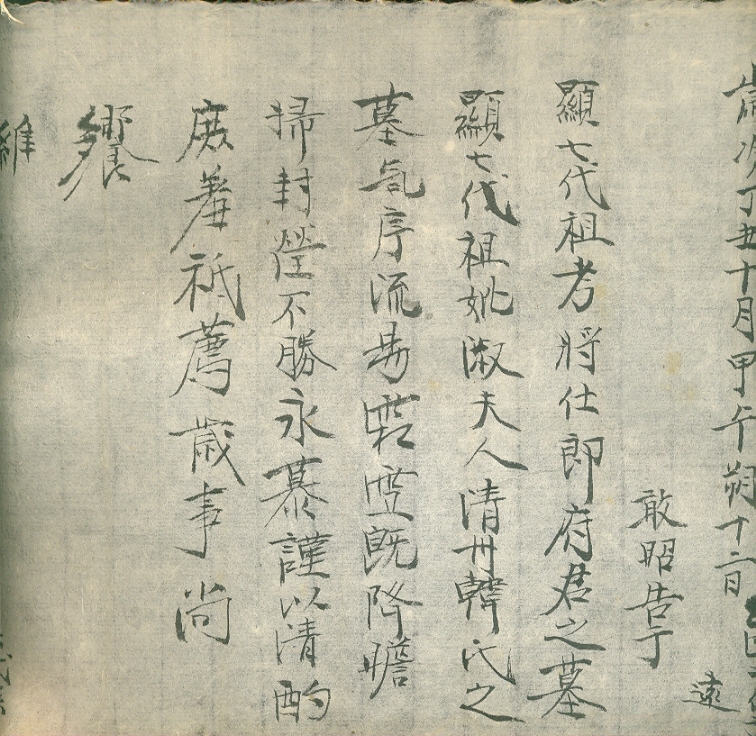 歲次丁丑十月甲午朔十二日
遠
敢昭告于
顯七代祖考將仕即府君之墓
顯七代祖妣淑夫人清州韓氏之
墓氣序流易霜露既降瞻
掃封瑩不勝永慕謹以清酌
庶羞祇薦歲事尚
饗
維